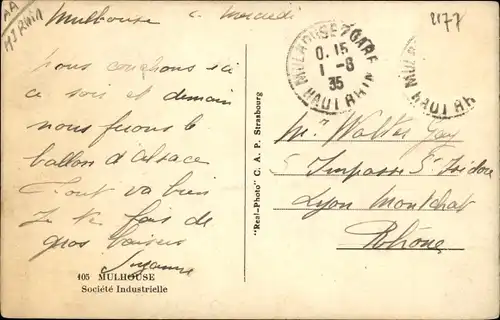 AA
HT RHIN
Mulhouse c. Mercredi
2177
MULHOUSE GARE
0. 15
1 - 8
35
HAUT RHIN
MUL
HAUT RH
Nous couchons ici
ce soir et demain
nous ferons le
ballon d'Alsace
Tout va bien
Je te fais de
gros baisers
Suzanne
105 MULHOUSE
Société Industrielle
"Real-Photo" C. A. P. Strasbourg
Mr Walter Gay
5 Impasse St Isidore
Lyon Montchat
Rhône